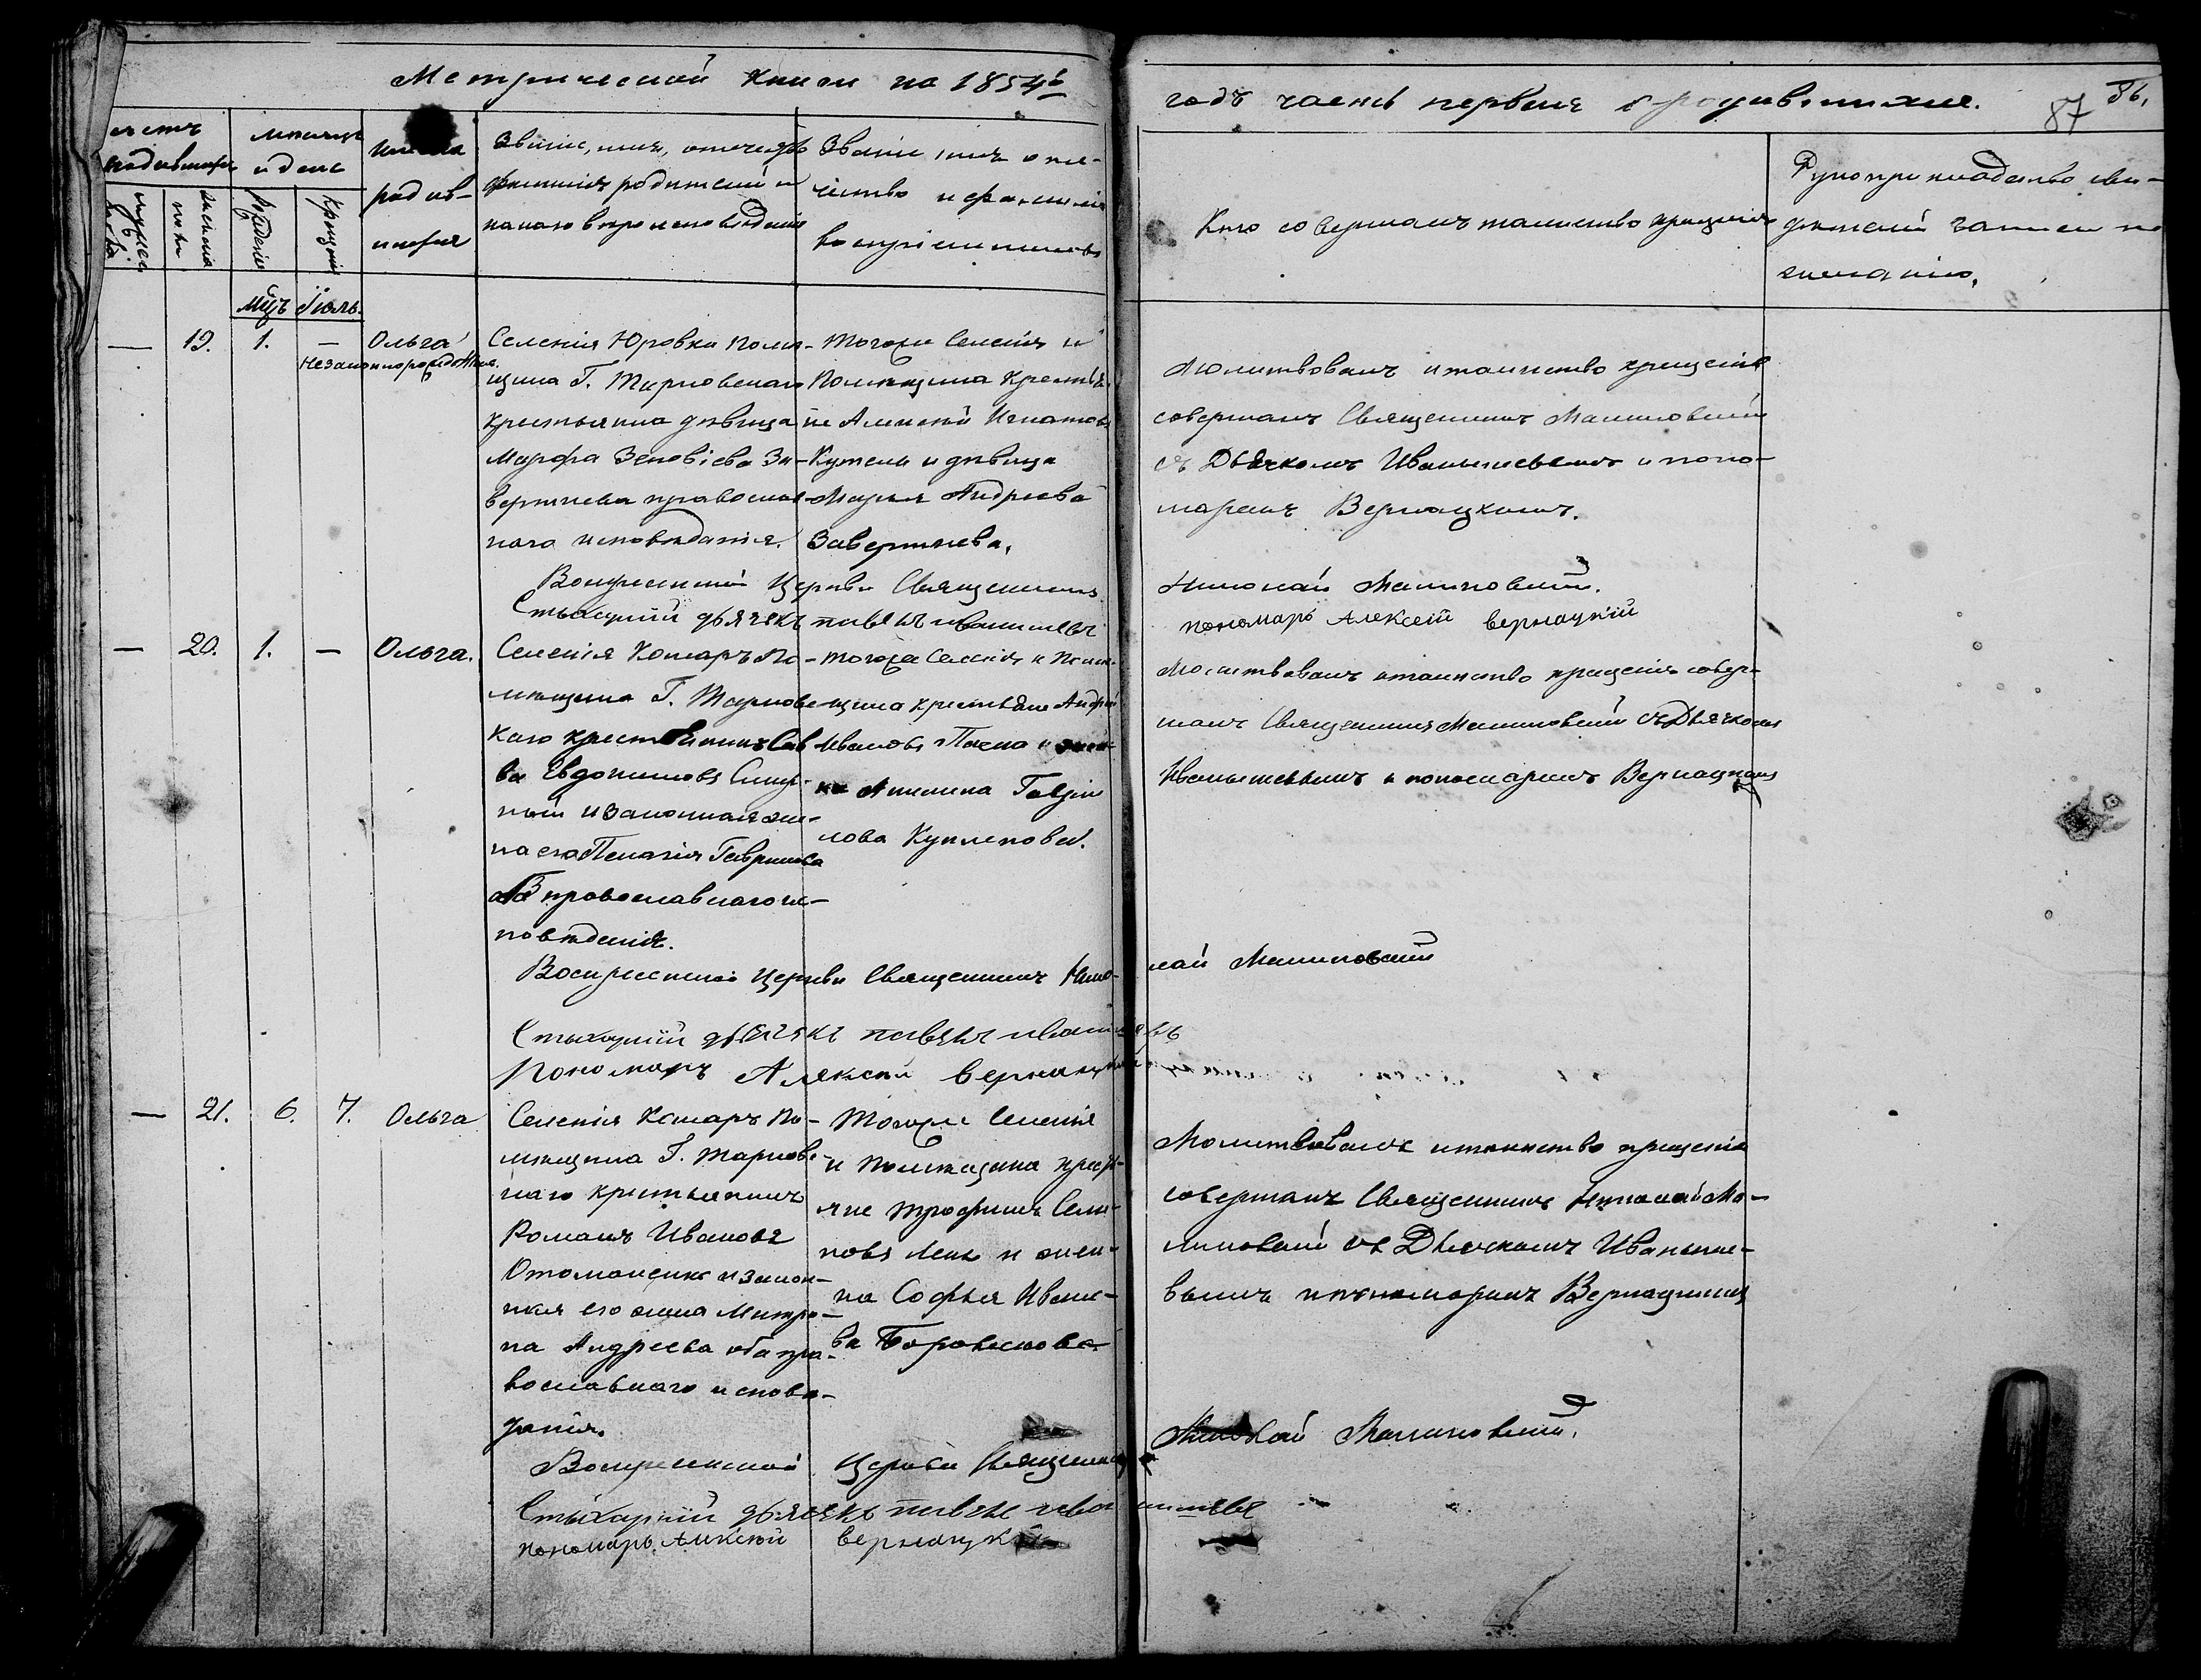 Метрической книги на 1854й
годъ часть первая о родившихся.
87
86.
счетъ родившихся
мѣсяцъ и день
имена родив-шихся
мужеска
женска
рожденія
крещенія
Званіе, имя, отчество
фамилія родителей и
какого вѣроисповѣданія
Званіе, имя отче-
чество и фамилія
воспріемниковъ
Кто совершалъ таинство крещенія
Рукоприкладство сви-
дѣтелей записи по
желанію.
мцъ Іюль.
— 19. 1. — Ольга
Незаконнорожденная.
Селенія Юровки помѣ-
щика Г. Тарновскаго
крестьянка дѣвица
Марфа Зеновіева За-
вертнева православ-
наго исповѣданія.
Тогоже Селенія и
Помѣщика крестья-
не Алексѣй Игнатовъ
и дѣвица
Марья Андреева
Завертнева.
Молитвовалъ и таинство крещенія
совершалъ Священникъ Малиновскій
съ Дьячкомъ Иванышевымъ и поно-
маремъ Вернацкимъ.
Воскресенской Церкви Священникъ
Николай Малиновскій.
Стыхарный дьячекъ павелъ иванишевъ
пономарь Алексѣй вернацкій
— 20. 1. — Ольга.
Селенія Комаръ По-
мѣщика Г. Тарновс-
каго крестьянинъ Сав-
ва Евдокимовъ
и законная же-
на его Пелагія Гаврилова
оба православнаго ис-
повѣданія.
Тогоже Селенія и Помѣ-
щика крестьяне Андрей
Ивановъ и жен-
ка Акилина Гаври-
лова
Молитвовалъ и таинство крещенія совер-
шалъ Священникъ Малиновскій съ Дьячкомъ
Иванышевымъ и пономаремъ Вернацкимъ
Воскресенской Церкви Священникъ Нико-
лай Малиновскій
Стыхарный дьячекъ павелъ иванишевъ
Пономарь Алексѣй вернацкій
— 21. 6. 7. Ольга
Селенія Комаръ По-
мѣщика Г. Тарновс-
каго крестьянинъ
Романъ Ивановъ
и закон-
ная его жена Митро-
на Андреева оба пра-
вославнаго исповѣ-
данія.
Тогоже Селенія
и Помѣщика кресть-
яне Трофимъ Семе-
новъ и жен-
ка Софья Ивано-
ва
Молитвовалъ и таинство крещенія
совершалъ Священникъ Николай Ма-
линовскій съ Дьячкомъ Иваныше-
вымъ и пономаремъ Вернацкимъ
Воскресенской Церкви Священникъ
Николай Малиновскій.
Стыхарный дьячекъ павелъ иванишевъ
пономарь Алексѣй вернацкій